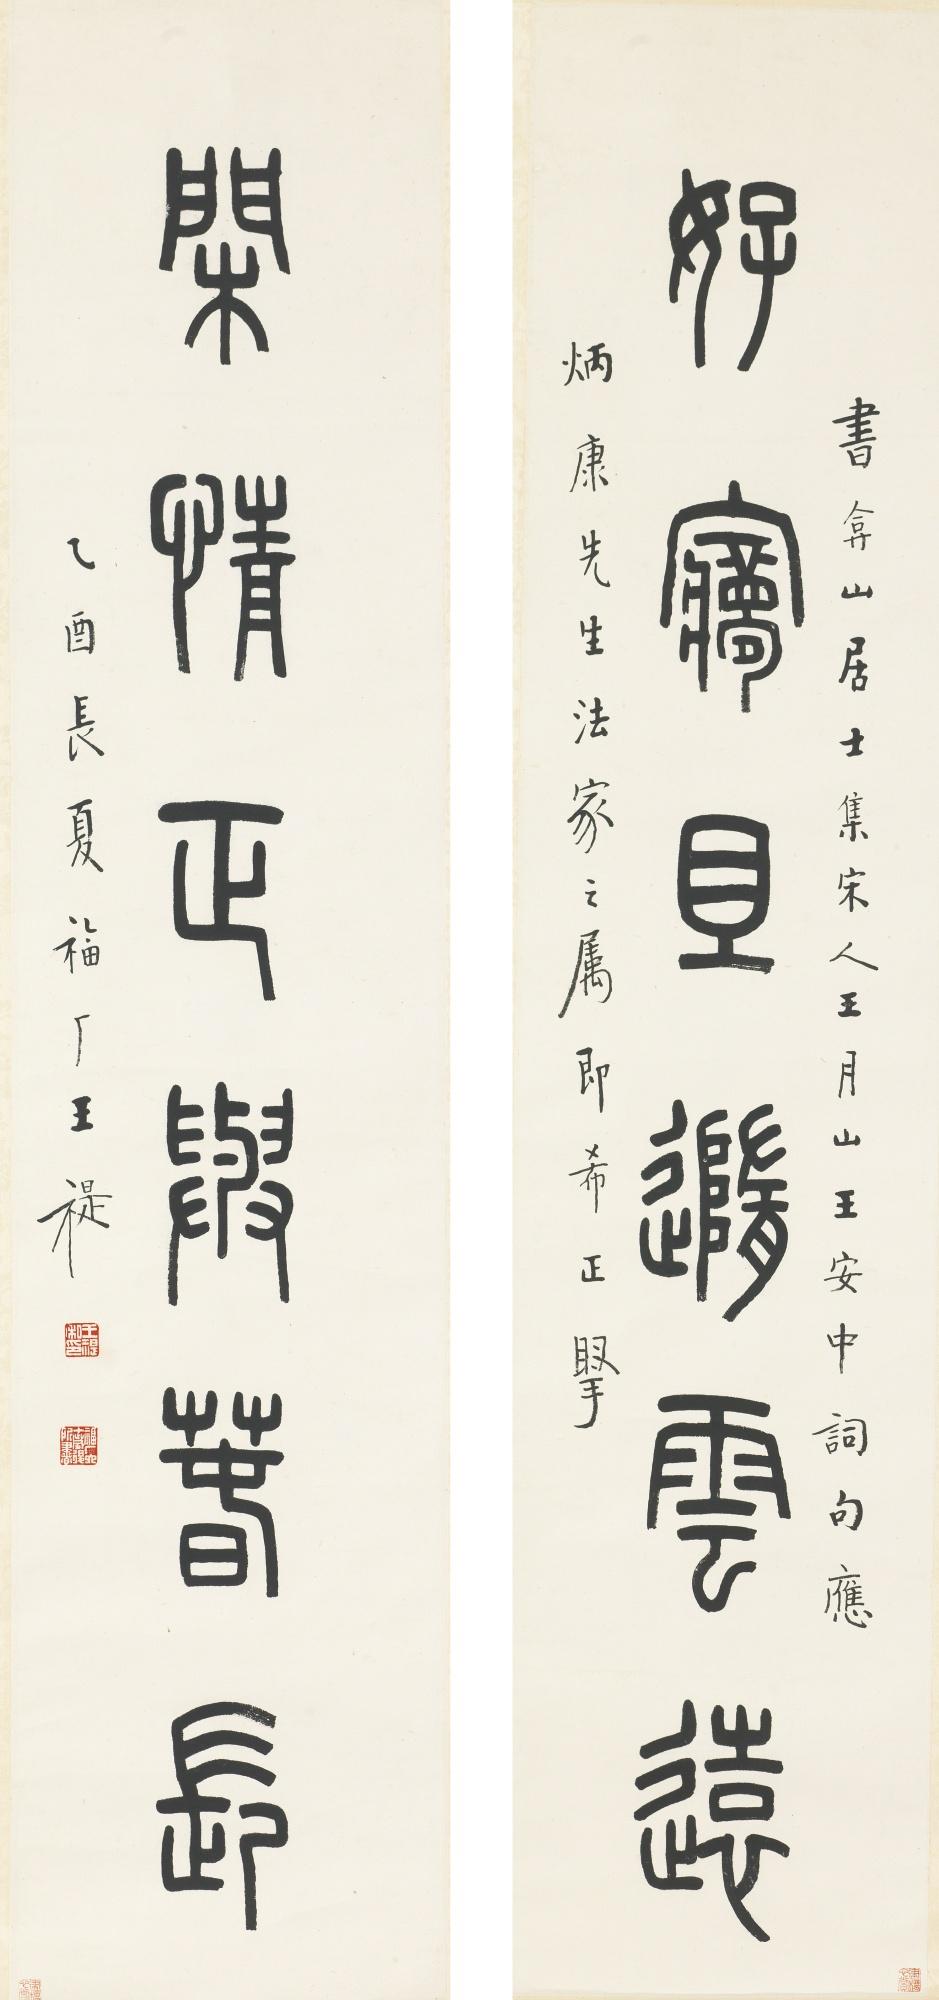 好㝱且隨雲遠
書弇山居士集宋人王月山王安中詞句應
炳康先生法家之属即希正擥
閑情正與春長
乙酉長夏福厂王禔